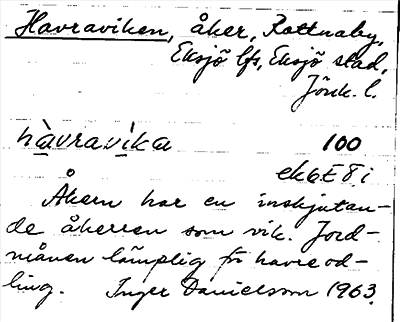 Havraviken, åker, Rottnaby,
Eksjö lfs, Eksjö stad,
Jönk. l.
hàvravìka 100
ek 6E 8i
Åkern har en inskjutan-
de åkerren som vik. Jord-
månen lämplig för havreod-
ling. Inger Danielsson 1963.